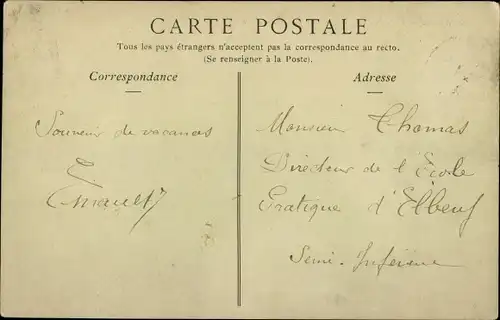 CARTE POSTALE
Tous les pays étrangers n'acceptent pas la correspondance au recto.
(Se renseigner à la Poste).
Correspondance
Adresse
Souvenir de vacances
Monsieur Thomas
Directeur de l'École
Pratique d'Elbeuf
Seine-Inférieure